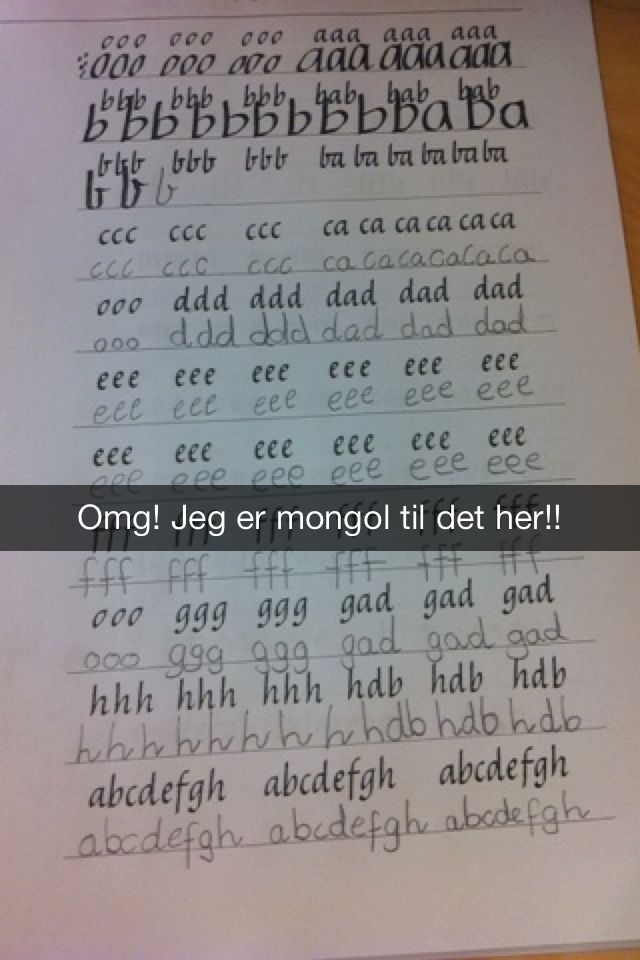 ooo ooo ooo aaa aaa aaa
ooo ooo ooo aaa aaa aaa
bbb bbb bbb bab bab bab
b b b b b b b b b b a b a
bbb bbb bbb ba ba ba ba ba ba
b b b
ccc ccc ccc ca ca ca ca ca ca
ccc ccc ccc ca ca ca ca ca ca
ooo ddd ddd dad dad dad
ooo ddd ddd dad dad dad
eee eee eee eee eee eee
eee eee eee eee eee eee
eee eee eee eee eee eee
eee eee eee eee eee eee
Omg! Jeg er mongol til det her!!
fff fff fff fff fff fff
fff fff fff fff fff fff
ooo ggg ggg gad gad gad
ooo ggg ggg gad gad gad
hhh hhh hhh hdb hdb hdb
h h h h h h h h h hdb hdb hdb
abcdefgh abcdefgh abcdefgh
abcdefgh abcdefgh abcdefgh